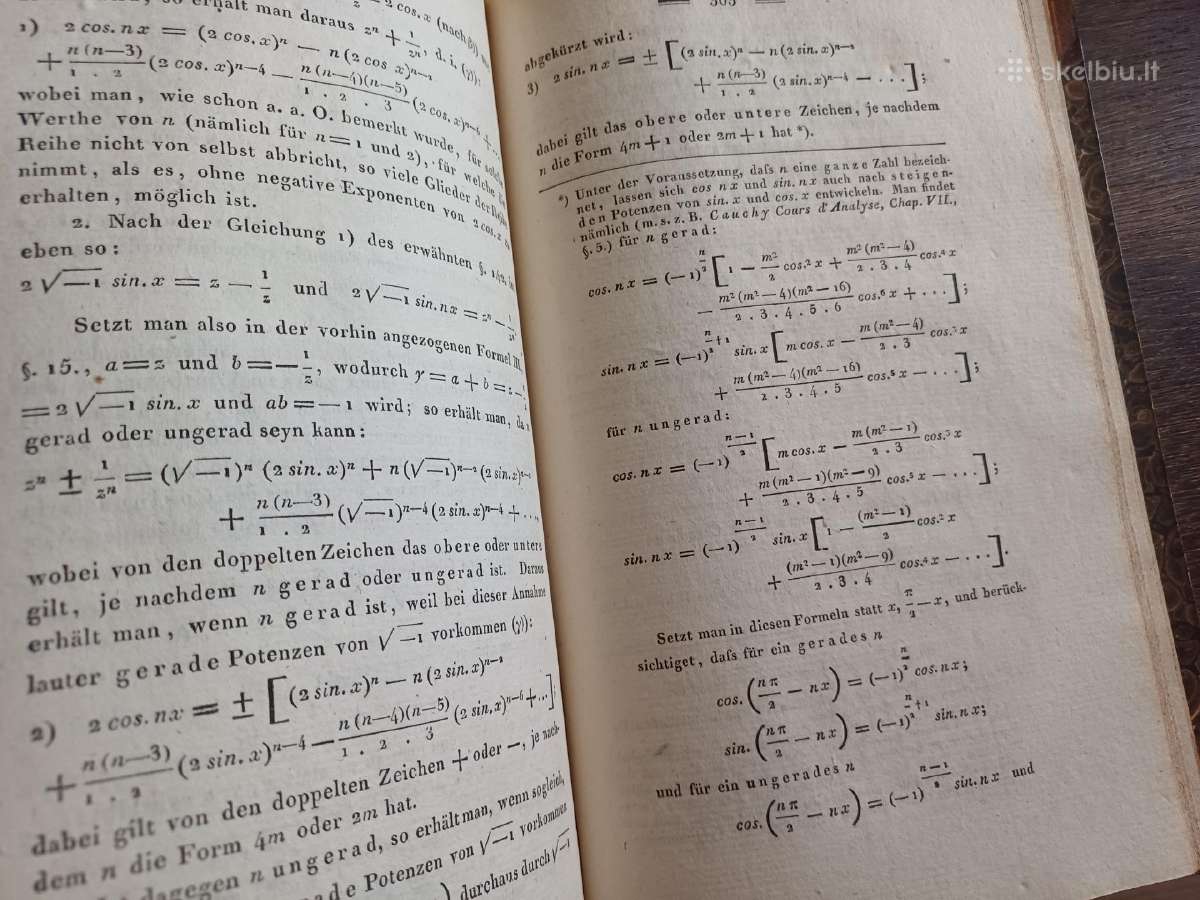 erhält man daraus zⁿ + 1/zⁿ, d. i. (γ)):
1) 2 cos. nx = (2 cos. x)ⁿ — n(2 cos x)ⁿ⁻²
+ n(n—3)/1 . 2 (2 cos. x)ⁿ⁻⁴ — n(n—4)(n—5)/1 . 2 . 3 (2 cos. x)ⁿ⁻⁶ + ...,
wobei man, wie schon a. a. O. bemerkt wurde, für
Werthe von n (nämlich für n = 1 und 2), für welche
Reihe nicht von selbst abbricht, so viele Glieder der
nimmt, als es, ohne negative Exponenten von 2 cos. x zu
erhalten, möglich ist.
2. Nach der Gleichung 1) des erwähnten §. 142,
eben so:
2 √—1 sin. x = z — 1/z und 2 √—1 sin. nx = zⁿ — 1/zⁿ.
Setzt man also in der vorhin angezogenen Formel
§. 15., a = z und b = — 1/z, wodurch γ = a + b = z — 1/z
= 2 √—1 sin. x und ab = — 1 wird; so erhält man, da n
gerad oder ungerad seyn kann:
zⁿ ± 1/zⁿ = (√—1)ⁿ (2 sin. x)ⁿ + n(√—1)ⁿ⁻² (2 sin. x)ⁿ⁻²
+ n(n—3)/1 . 2 (√—1)ⁿ⁻⁴ (2 sin. x)ⁿ⁻⁴ + ...,
wobei von den doppelten Zeichen das obere oder untere
gilt, je nachdem n gerad oder ungerad ist. Daraus
erhält man, wenn n gerad ist, weil bei dieser Annahme
lauter gerade Potenzen von √—1 vorkommen (γ)):
2) 2 cos. nx = ± [(2 sin. x)ⁿ — n (2 sin. x)ⁿ⁻²
+ n(n—3)/1 . 2 (2 sin. x)ⁿ⁻⁴ — n(n—4)(n—5)/1 . 2 . 3 (2 sin. x)ⁿ⁻⁶ + ...];
dabei gilt von den doppelten Zeichen + oder —, je nach-
dem n die Form 4m oder 2m hat.
dagegen n ungerad, so erhält man, wenn sogleich,
Potenzen von √—1 vorkommen
durchaus durch √—1
abgekürzt wird:
3) 2 sin. nx = ± [(2 sin. x)ⁿ — n(2 sin. x)ⁿ⁻²
+ n(n—3)/1 . 2 (2 sin. x)ⁿ⁻⁴ — ...];
dabei gilt das obere oder untere Zeichen, je nachdem
n die Form 4m + 1 oder 2m + 1 hat *).
*) Unter der Voraussetzung, daſs n eine ganze Zahl bezeich-
net, lassen sich cos nx und sin. nx auch nach steigen-
den Potenzen von sin. x und cos. x entwickeln. Man findet
nämlich (m. s. z. B. Cauchy Cours d'Analyse, Chap. VII.,
§. 5.) für n gerad:
cos. nx = (—1)^(n/2) [1 — m²/2 cos.² x + m²(m²—4)/2 . 3 . 4 cos.⁴ x
— m²(m²—4)(m²—16)/2 . 3 . 4 . 5 . 6 cos.⁶ x + ...];
sin. nx = (—1)^(n/2 + 1) sin. x [m cos. x — m(m²—4)/2 . 3 cos.³ x
+ m(m²—4)(m²—16)/2 . 3 . 4 . 5 cos.⁵ x — ...];
für n ungerad:
cos. nx = (—1)^((n—1)/2) [m cos. x — m(m²—1)/2 . 3 cos.³ x
+ m(m²—1)(m²—9)/2 . 3 . 4 . 5 cos.⁵ x — ...];
sin. nx = (—1)^((n—1)/2) sin. x [1 — (m²—1)/2 cos.² x
+ (m²—1)(m²—9)/2 . 3 . 4 cos.⁴ x — ...].
Setzt man in diesen Formeln statt x, π/2 — x, und berück-
sichtiget, daſs für ein gerades n
cos. (nπ/2 — nx) = (—1)^(n/2) cos. nx;
sin. (nπ/2 — nx) = (—1)^(n/2 + 1) sin. nx;
und für ein ungerades n
cos. (nπ/2 — nx) = (—1)^((n—1)/2) sin. nx und
skelbiu.lt